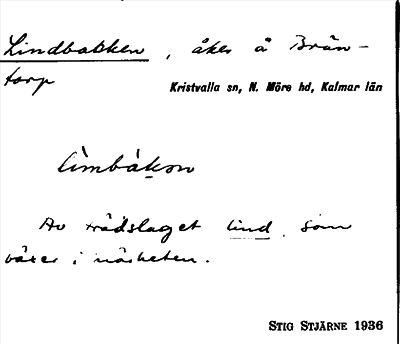 Lindbakken, åker å Brän-
torp
Kristvalla sn, N. Möre hd, Kalmar län
lìmbàkən
Av trädslaget lind, som
växer i närheten.
STIG STJÄRNE 1936